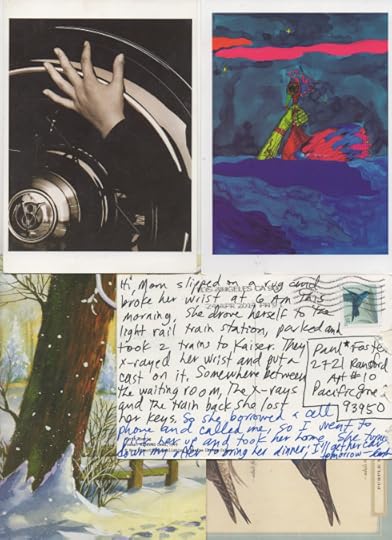 Hi, Mom slipped on a rug and
broke her wrist at 6 AM this
morning. She drove herself to the
light rail train station, parked and
took 2 trains to Kaiser. They
x-rayed her wrist and put a
cast on it. Somewhere between
the waiting room, the x-rays
and the train back she lost
her keys. So she borrowed a cell
phone and called me, so I went to
pick her up and took her home. She
down my offer to bring her dinner, I'll get her car
tomorrow
LOS ANGELES CA
Paul Foster
2721 Ransford
Apt #10
Pacific Grove
93950